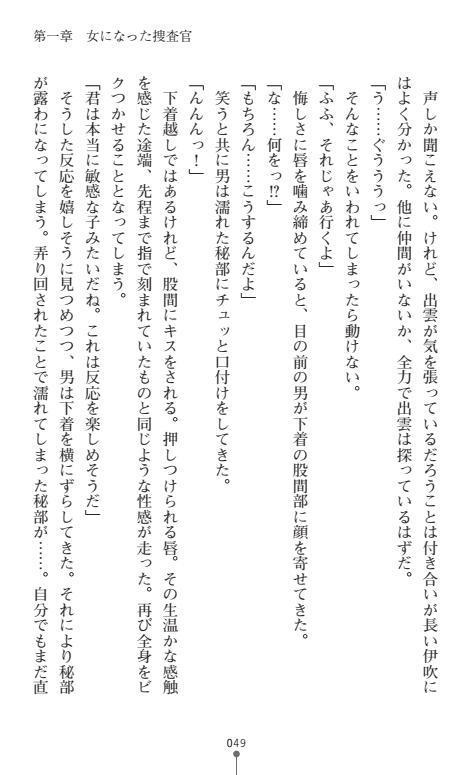 第一章　女になった捜査官
　声しか聞こえない。けれど、出雲が気を張っているだろうことは付き合いが長い伊吹に
はよく分かった。他に仲間がいないか、全力で出雲は探っているはずだ。
「う……ぐううっ」
　そんなことをいわれてしまったら動けない。
「ふふ、それじゃあ行くよ」
　悔しさに唇を噛み締めていると、目の前の男が下着の股間部に顔を寄せてきた。
「な……何をっ!?」
「もちろん……こうするんだよ」
　笑うと共に男は濡れた秘部にチュッと口付けをしてきた。
「んんんっ！」
　下着越しではあるけれど、股間にキスをされる。押しつけられる唇。その生温かな感触
を感じた途端、先程まで指で刻まれていたものと同じような性感が走った。再び全身をビ
クつかせることとなってしまう。
「君は本当に敏感な子みたいだね。これは反応を楽しめそうだ」
　そうした反応を嬉しそうに見つめつつ、男は下着を横にずらしてきた。それにより秘部
が露わになってしまう。弄り回されたことで濡れてしまった秘部が……。自分でもまだ直
049